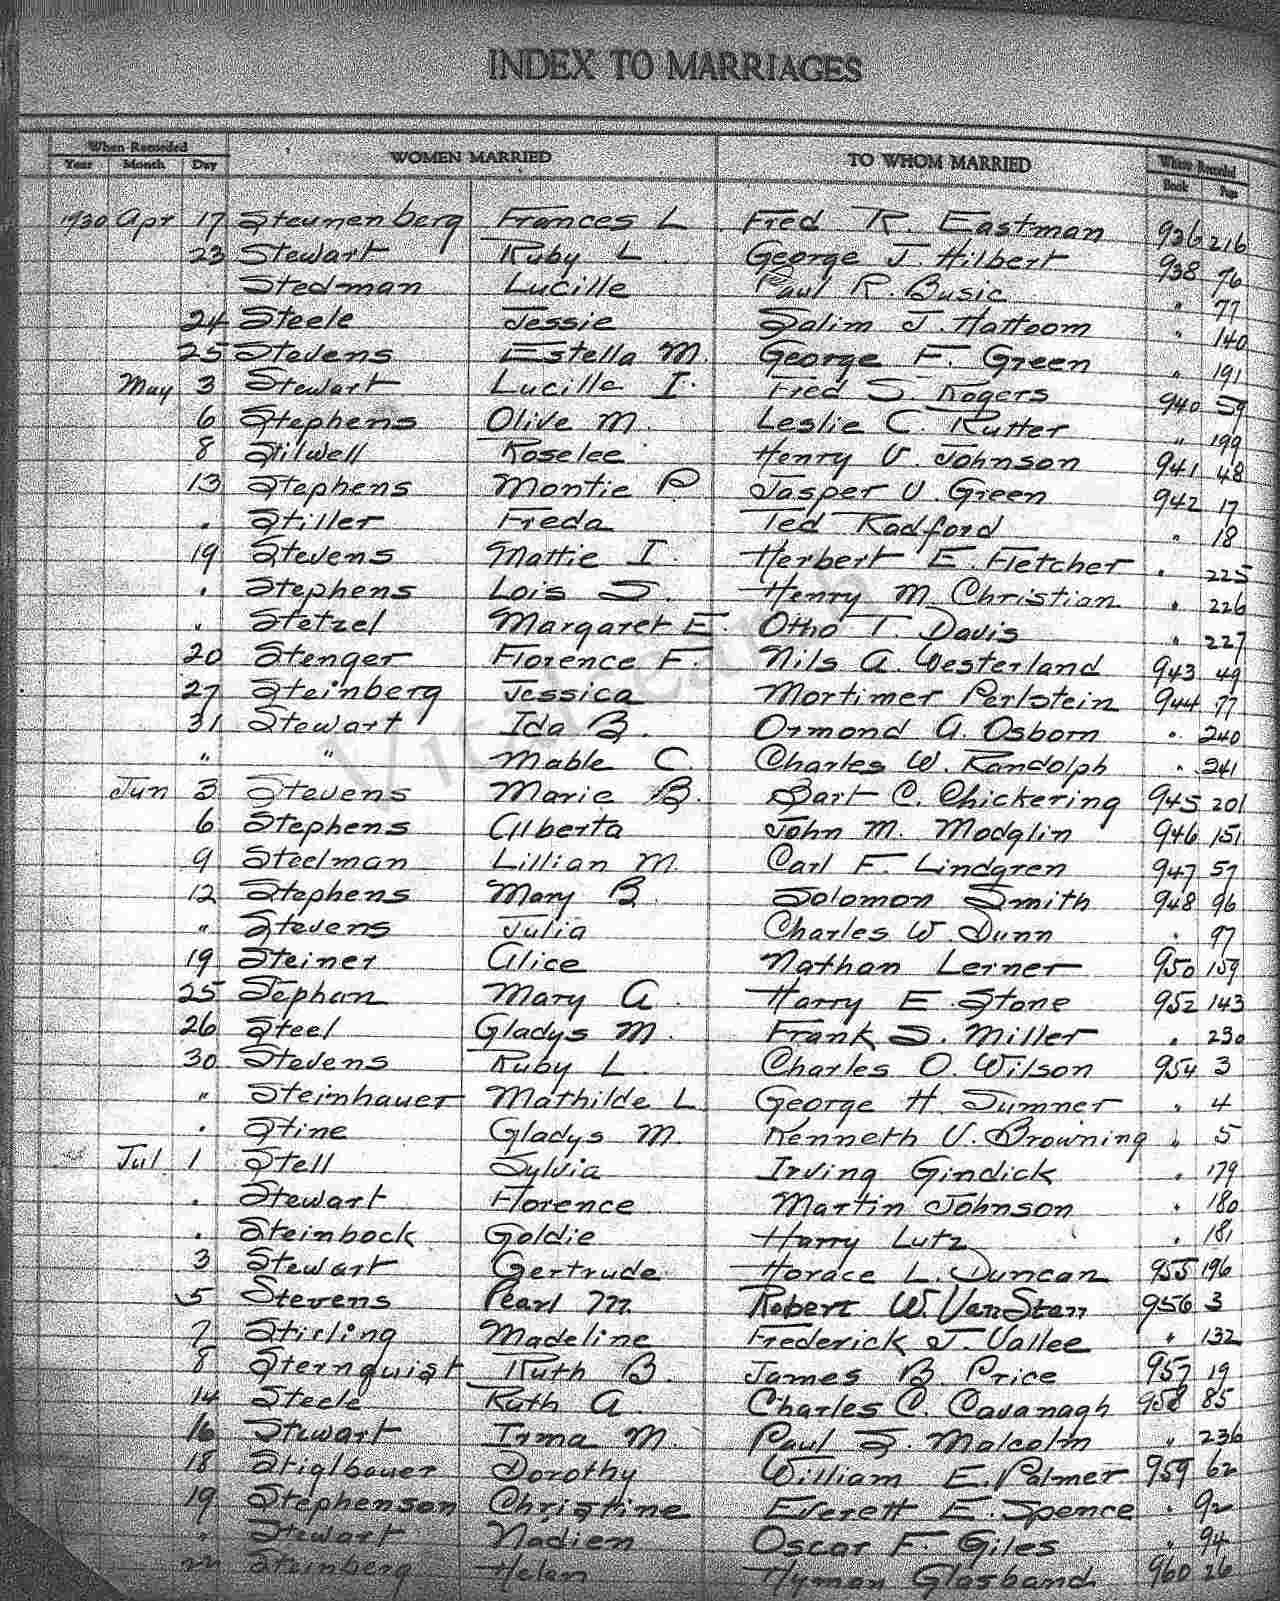 INDEX TO MARRIAGES
When Recorded WOMEN MARRIED TO WHOM MARRIED Where Recorded
Year Month Day Book Page
1930 Apr 17 Steunenberg Frances L Fred R. Eastman 936 216
23 Stewart Ruby L George J. Hilbert 938 76
Stedman Lucille Paul R. Busic " 77
24 Steele Jessie Salim J. Hattoom " 140
25 Stevens Estella M. George F. Green " 191
May 3 Stewart Lucille I. Fred S. Rogers 940 59
6 Stephens Olive M. Leslie C. Rutter " 199
8 Stilwell Roselee Henry V. Johnson 941 48
13 Stephens Montie P. Jasper V. Green 942 17
" Stiller Freda Ted Radford " 18
19 Stevens Mattie I. Herbert E. Fletcher " 225
" Stephens Lois S. Henry M. Christian " 226
" Stetzel Margaret E. Otho T. Davis " 227
20 Stenger Florence F. Nils A. Westerland 943 49
27 Steinberg Jessica Mortimer Perlstein 944 77
31 Stewart Ida B. Ormond A. Osborn " 240
" " Mable C. Charles W. Randolph " 241
Jun 3 Stevens Marie B. Bart C. Chickering 945 201
6 Stephens Alberta John M. Modglin 946 151
9 Steelman Lillian M. Carl F. Lindgren 947 57
12 Stephens Mary B. Solomon Smith 948 96
" Stevens Julia Charles W. Dunn " 97
19 Steiner Alice Nathan Lerner 950 159
25 Stephan Mary A. Harry E. Stone 952 143
26 Steel Gladys M. Frank S. Miller " 230
30 Stevens Ruby L. Charles O. Wilson 954 3
" Steinhauer Mathilde L George H. Sumner " 4
" Stine Gladys M. Kenneth V. Browning " 5
Jul 1 Stell Sylvia Irving Gindick " 179
" Stewart Florence Martin Johnson " 180
" Steinbock Goldie Harry Lutz " 181
3 Stewart Gertrude Horace L. Duncan 955 196
5 Stevens Pearl M. Robert W. Van 956 3
7 Stirling Madeline Frederick J. Vallee " 132
8 Sternquist Ruth B. James B. Price 957 19
14 Steele Ruth A Charles C. Cavanagh 958 85
16 Stewart Irma M. Paul S. Malcolm " 236
18 Stiglbauer Dorothy William E. Palmer 959 62
19 Stephenson Christine Everett E. Spence " 92
" Stewart Nadien Oscar F. Giles " 94
22 Steinberg Helen Hyman Glasband 960 26